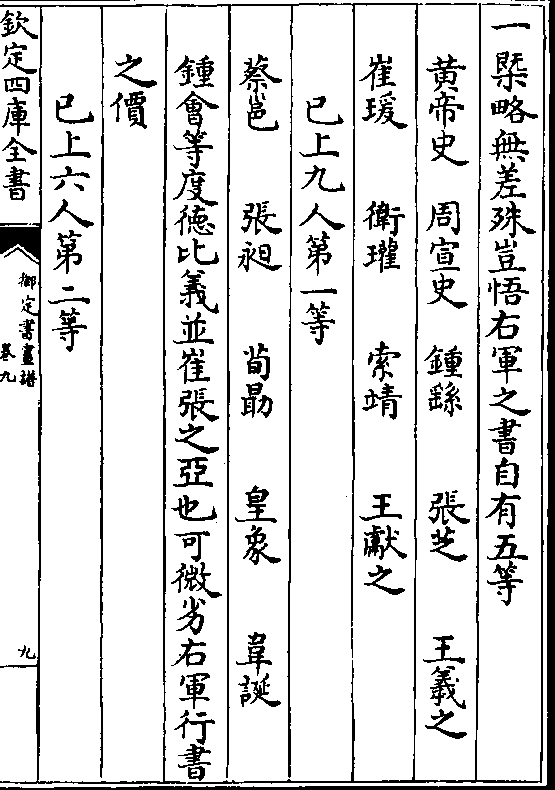 一槩略無差殊豈悟右軍之書自有五等
黄帝史 周宣史 鍾繇 張芝 王羲之
崔瑗 衛瓘 索靖 王獻之
已上九人第一等
蔡邕 張昶 荀勗 皇象 韋誕
鍾會等度德比義並崔張之亞也可微劣右軍行書
之價
已上六人第二等
欽定四庫全書
御定書畫譜
卷九
九